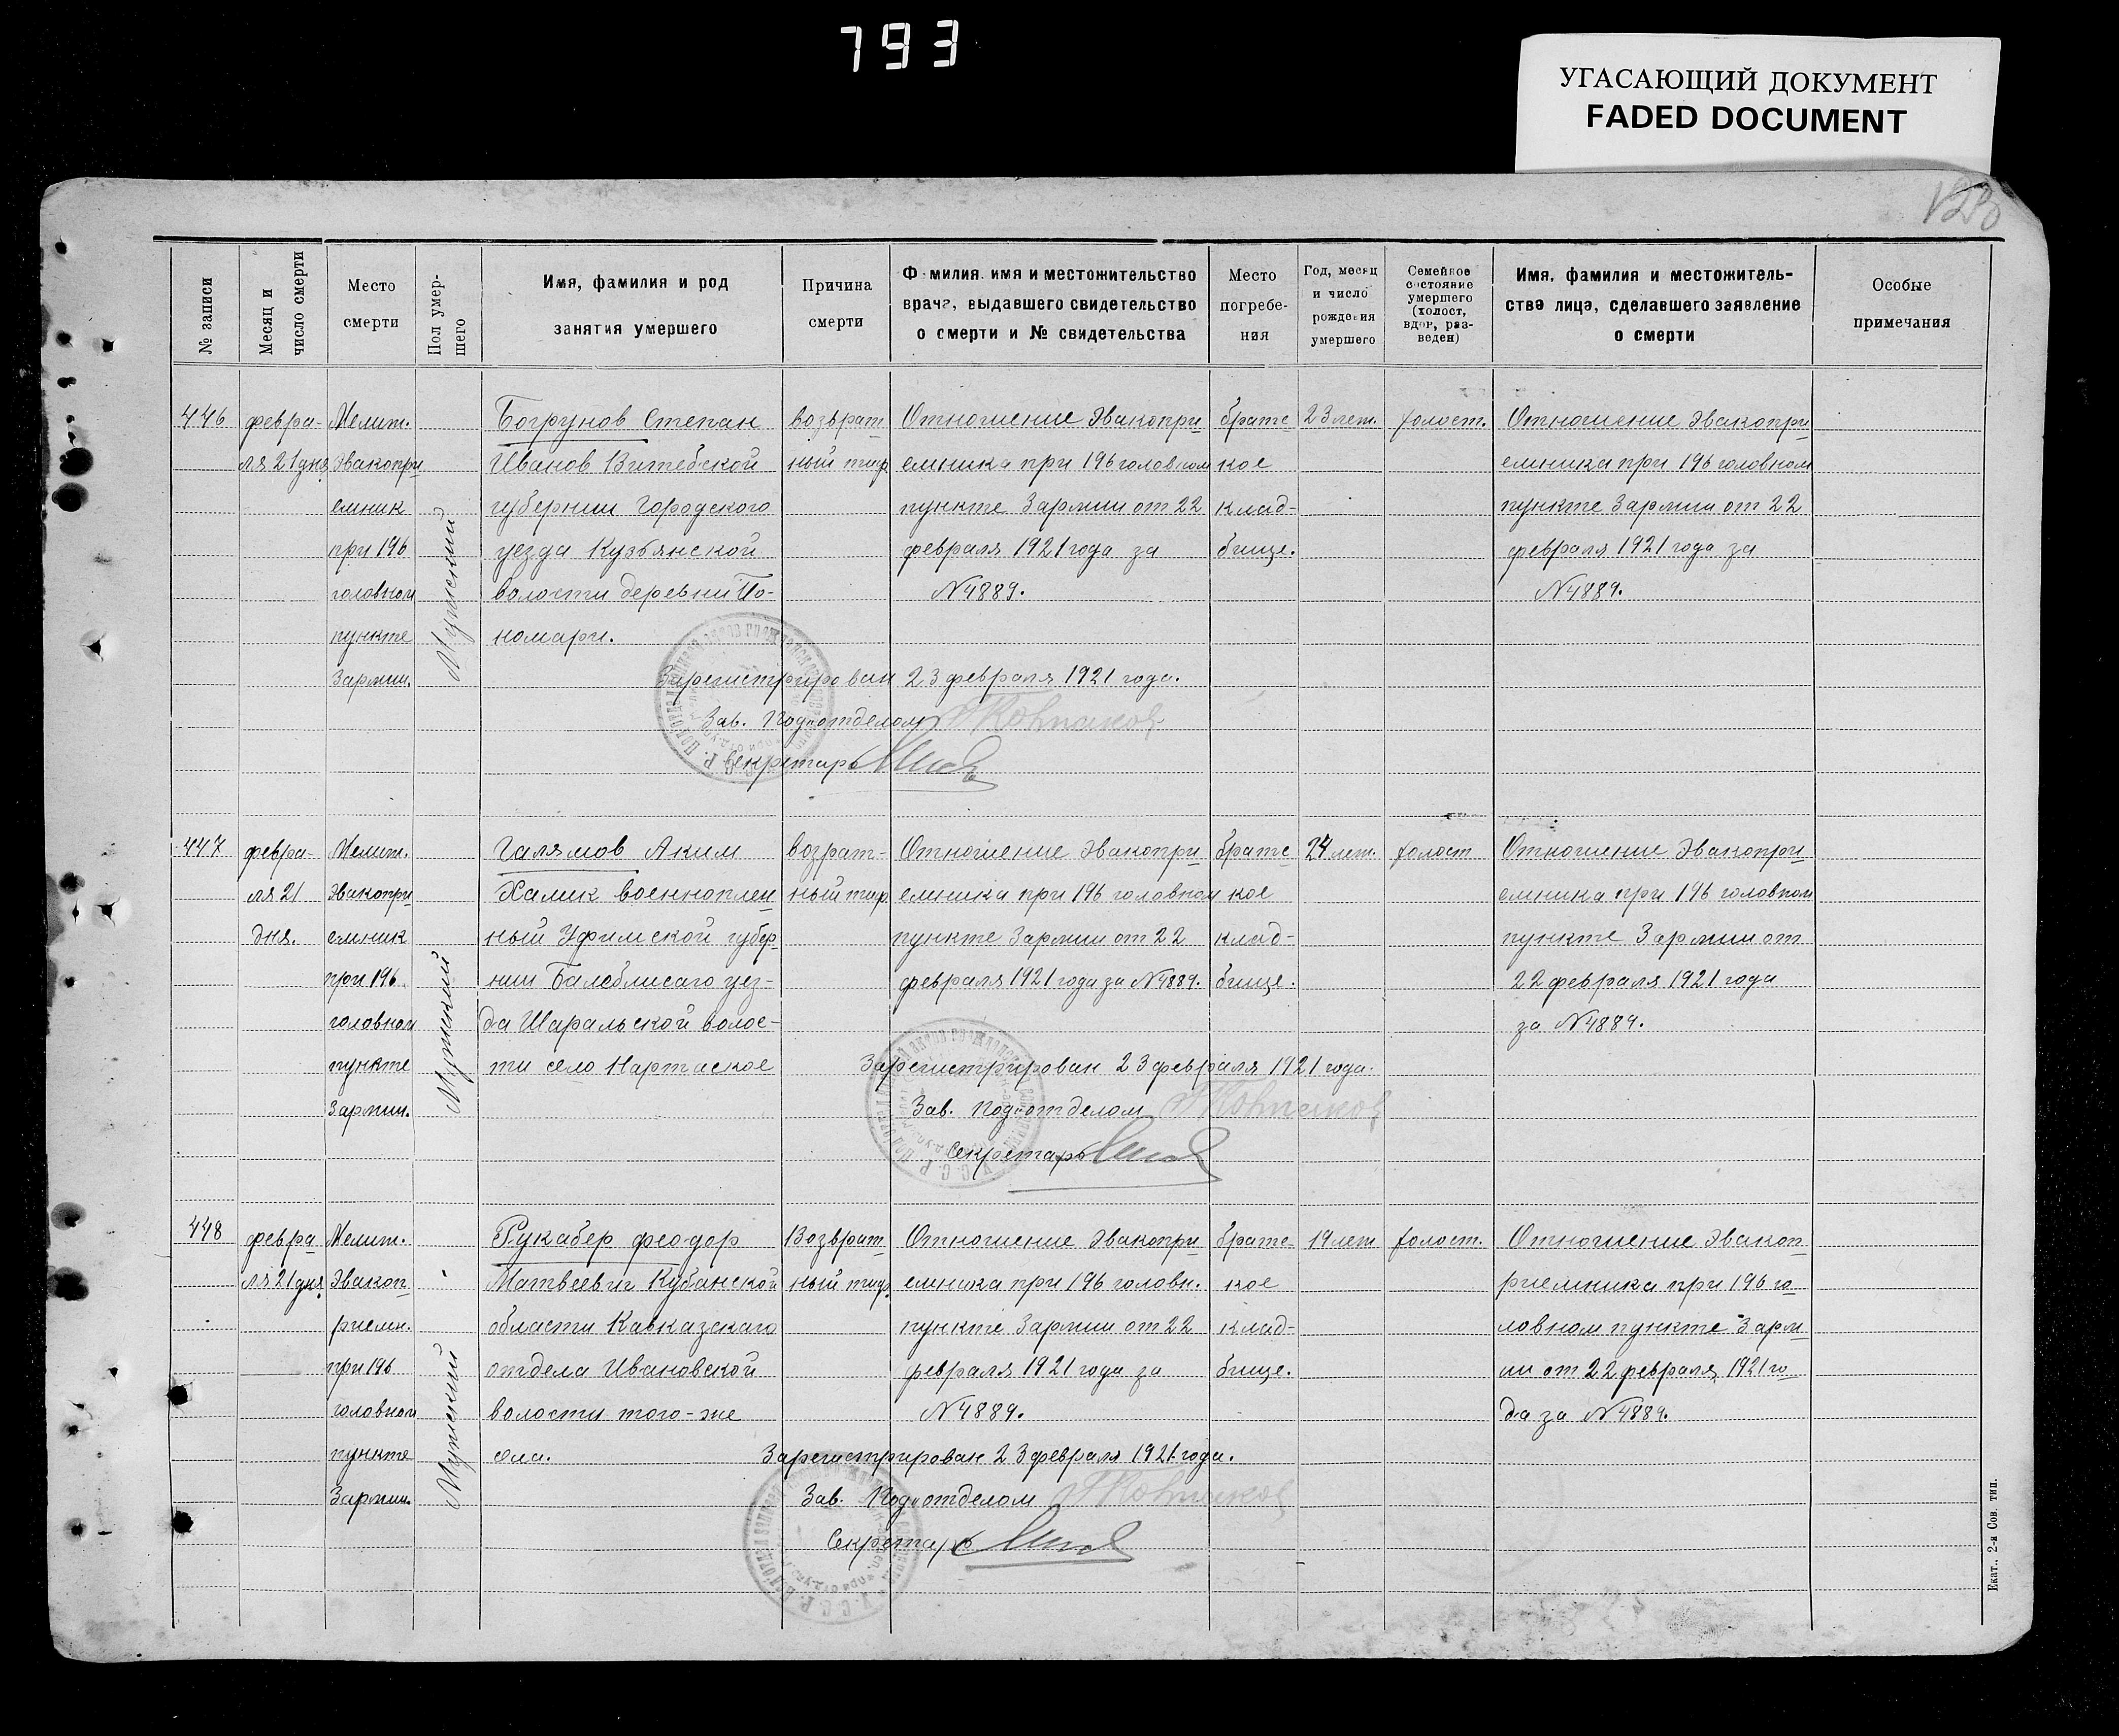 793
УГАСАЮЩИЙ ДОКУМЕНТ
FADED DOCUMENT
№ записи
Месяц и
число смерти
Место
смерти
Пол умер-
шего
Имя, фамилия и род
занятия умершего
Причина
смерти
Фамилия, имя и местожительство
врача, выдавшего свидетельство
о смерти и № свидетельства
Место
погребе-
ния
Год, месяц
и число
рождения
умершего
Семейное
состояние
умершего
(холост,
вдов, раз-
веден)
Имя, фамилия и местожитель-
ство лица, сделавшего заявление
о смерти
Особые
примечания
446
февра-
ля 21 дня
Мелит.
Эвакопри
емник
при 196
головном
пункте
3армии.
Мужский
Богрунов Степан
Иванов Витебской
губернии Городского
уезда Кузьянской
волости деревни По-
номари.
возврат
ный тиф
Отношение Эвакопри
емника при 196 головном
пункте 3армии от 22
февраля 1921 года за
№4889.
братс
кое
клад-
бище.
23 лет.
холост.
Отношение Эвакопри
емника при 196 головном
пункте 3армии от 22
февраля 1921 года за
№4889.
Зарегистрирован 23 февраля 1921 года.
Зав. Подотделом
Секретарь
447
февра-
ля 21
дня.
Мелит.
Эвакопри
емник
при 196
головном
пункте
3армии.
Мужский
Галямов Аким
Халик военноплен
ный Уфимской губер
нии Балеблисаго уез-
да Шаральской волос-
ти село Нартаское
возрат-
ный тиф
Отношение Эвакопри
емника при 196 головном
пункте 3армии от 22
февраля 1921 года за №4889.
братс
кое
клад-
бище.
24 лет.
холост
Отношение Эвакопри
емника при 196 головном
пункте 3армии от
22 февраля 1921 года
за №4889.
Зарегистрирован 23 февраля 1921 года.
Зав. Подотделом
Секретарь
448
февра
ля 21 дня
Мелит.
Эвакоп
риемн.
при 196
головном
пункте
3армии.
Мужский
Рукабер Феодор
Матвеевич Кубанской
области Кавказскаго
отдела Ивановской
волости того-же
села.
Возврат
ный тиф.
Отношение Эвакопри
емника при 196 головн.
пункте 3армии от 22
февраля 1921 года за
№4889.
братс
кое
клад-
бище.
19 лет
холост.
Отношение Эвакоп
риемника при 196 го
ловном пункте 3арм
ии от 22 февраля 1921 го
да за №4889.
Зарегистрирован 23 февраля 1921 года.
Зав. Подотделом
Секретарь
Екат., 2-я Сов. тип.